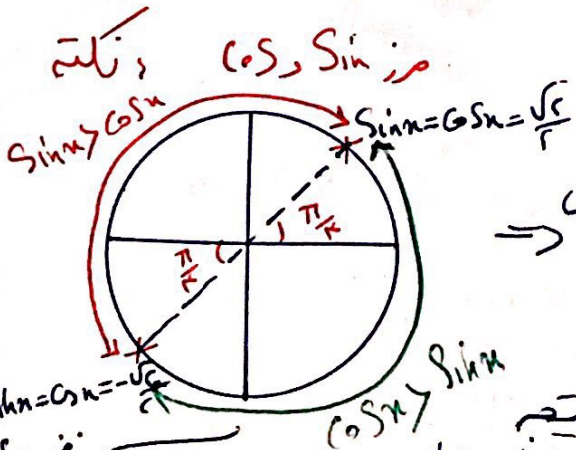 نکته : مرز Sin و Cos
Sinx>Cosx
Sinx=Cosx=√۲/۲
π/۴
⇒
π/۴
Sinx=Cosx=-√۲/۲
Cosx>Sinx